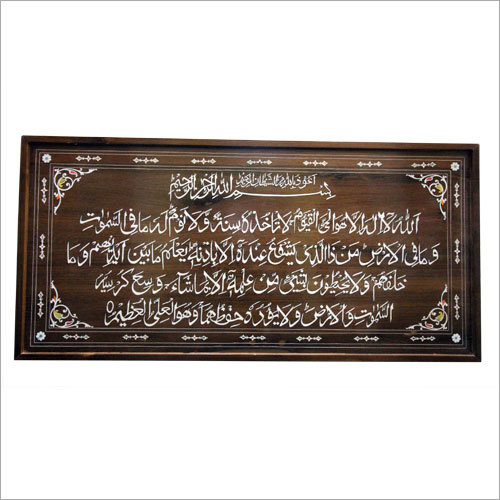 اعوذ بالله من الشيطان الرجيم
بسم الله الرحمن الرحيم
الله لا اله الا هو الحي القيوم لا تاخذه سنة ولا نوم له ما في السموت
وما في الارض من ذا الذي يشفع عنده الا باذنه يعلم ما بين ايديهم وما
خلفهم ولا يحيطون بشيء من علمه الا بما شاء وسع كرسيه
السموت والارض ولا يؤده حفظهما وهو العلي العظيم